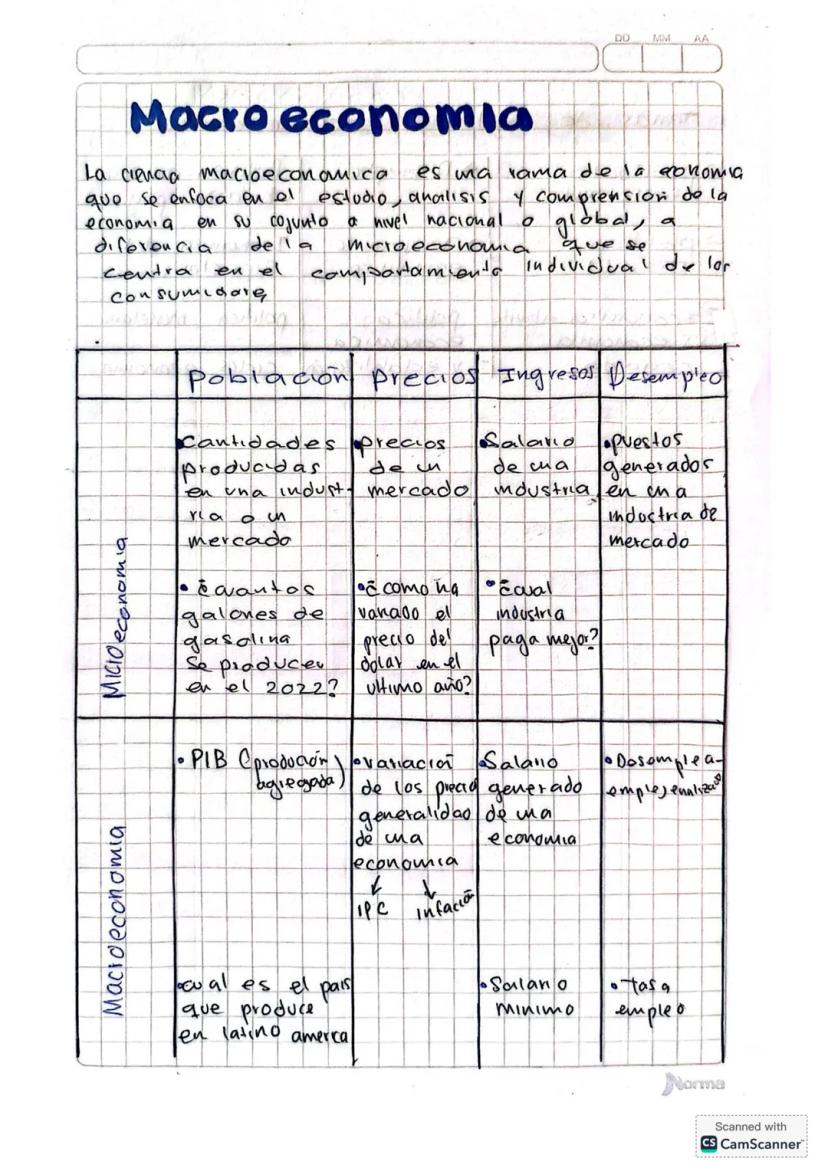 DD MM AA
Macroeconomia
La ciencia macroeconomica es una rama de la economia
que se enfoca en el estudio, analisis y comprension de la
economia en su cojunto a nivel nacional o global, a
diferencia de la microeconomia que se
centra en el comportamiento individual de los
consumidores
Población Precios Ingresos Desempleo
Microeconomia
•Cantidades
producidas
en una indust-
ria o un
mercado
• ¿cuantos
galones de
gasolina
se producen
en el 2022?
•precios
de un
mercado
•¿como ha
variado el
precio del
dolar en el
ultimo año?
•Salario
de una
industria
•¿cual
industria
paga mejor?
•puestos
generados
en una
industria de
mercado
Macroeconomia
•PIB (producción
agregada)
•cual es el pais
que produce
en latino america
•variación
de los precio
generalidad
de una
economia
IPC infación
•Salario
generado
de una
economia
•Salario
minimo
•Desemplea-
•tasa
empleo
Norma
Scanned with
CS CamScanner